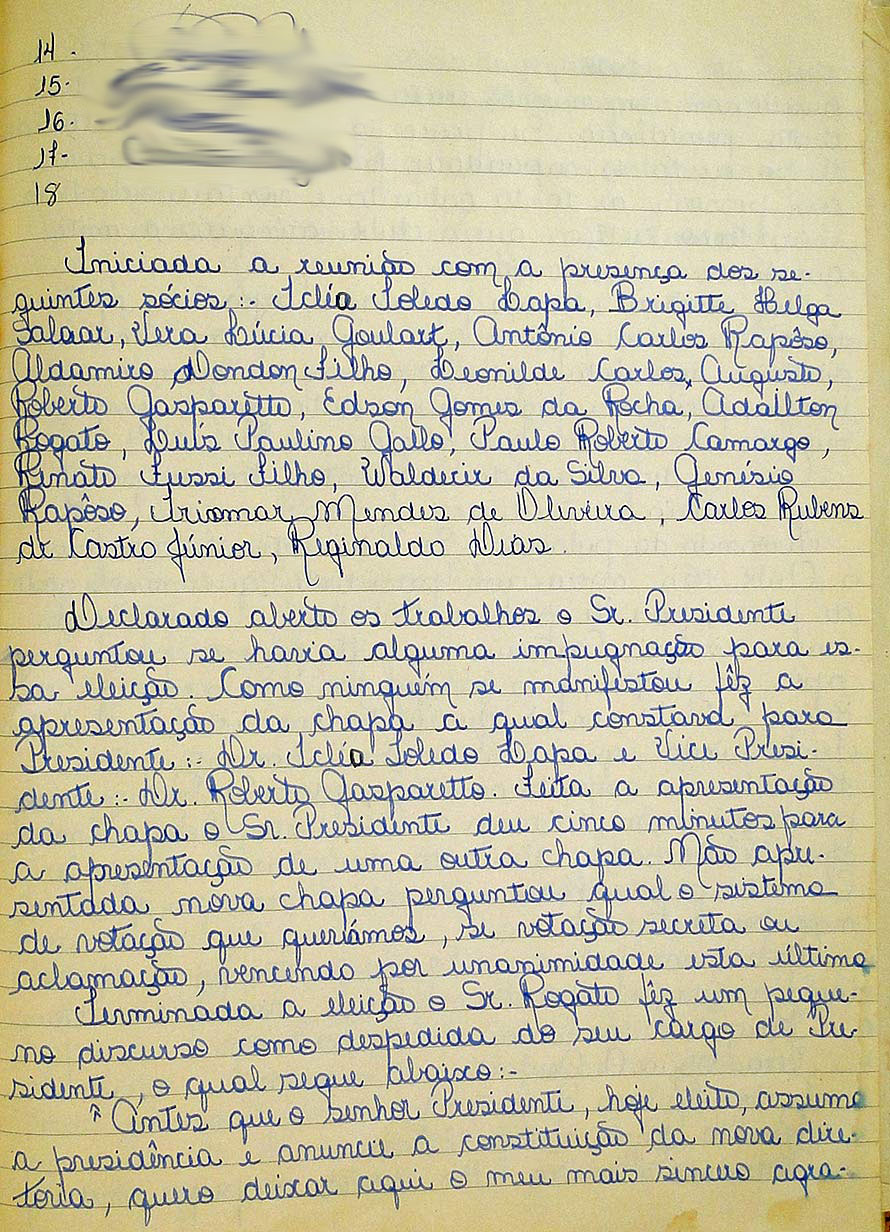 14.
15.
16.
17-
18
Iniciada a reunião com a presença dos se-
guintes sócios:- Icléa Toledo Lapa, Brigitte Helga
Salaar, Vera Lúcia Goulart, Antônio Carlos Rapôso,
Aldamiro Dondon Filho, Leonilde Carlos, Augusto,
Roberto Gasparetto, Edson Gomes da Rocha, Adailton
Rogato, Luís Paulino Gallo, Paulo Roberto Camargo,
Renato Fussi Filho, Waldecir da Silva, Genésio
Rapôso, Iriomar Mendes de Oliveira, Carlos Rubens
de Castro Júnior, Reginaldo Dias.
Declarado aberto os trabalhos o Sr. Presidente
perguntou se havia alguma impugnação para es-
sa eleição. Como ninguém se manifestou fêz a
apresentação da chapa a qual constava para
Presidente:- Dr. Icléa Toledo Lapa e Vice Presi-
dente:- Dr. Roberto Gasparetto. Feita a apresentação
da chapa o Sr. Presidente deu cinco minutos para
a apresentação de uma outra chapa. Não apre-
sentada nova chapa perguntou qual o sistema
de votação que queríamos, se votação secreta ou
aclamação, vencendo por unanimidade esta última
Terminada a eleição o Sr. Rogato fêz um peque-
no discurso como despedida do seu cargo de Pre
sidente, o qual segue abaixo:-
" Antes que o senhor Presidente, hoje eleito, assuma
a presidência e anuncie a constituição da nova dire-
toria, quero deixar aqui o meu mais sincero agra-